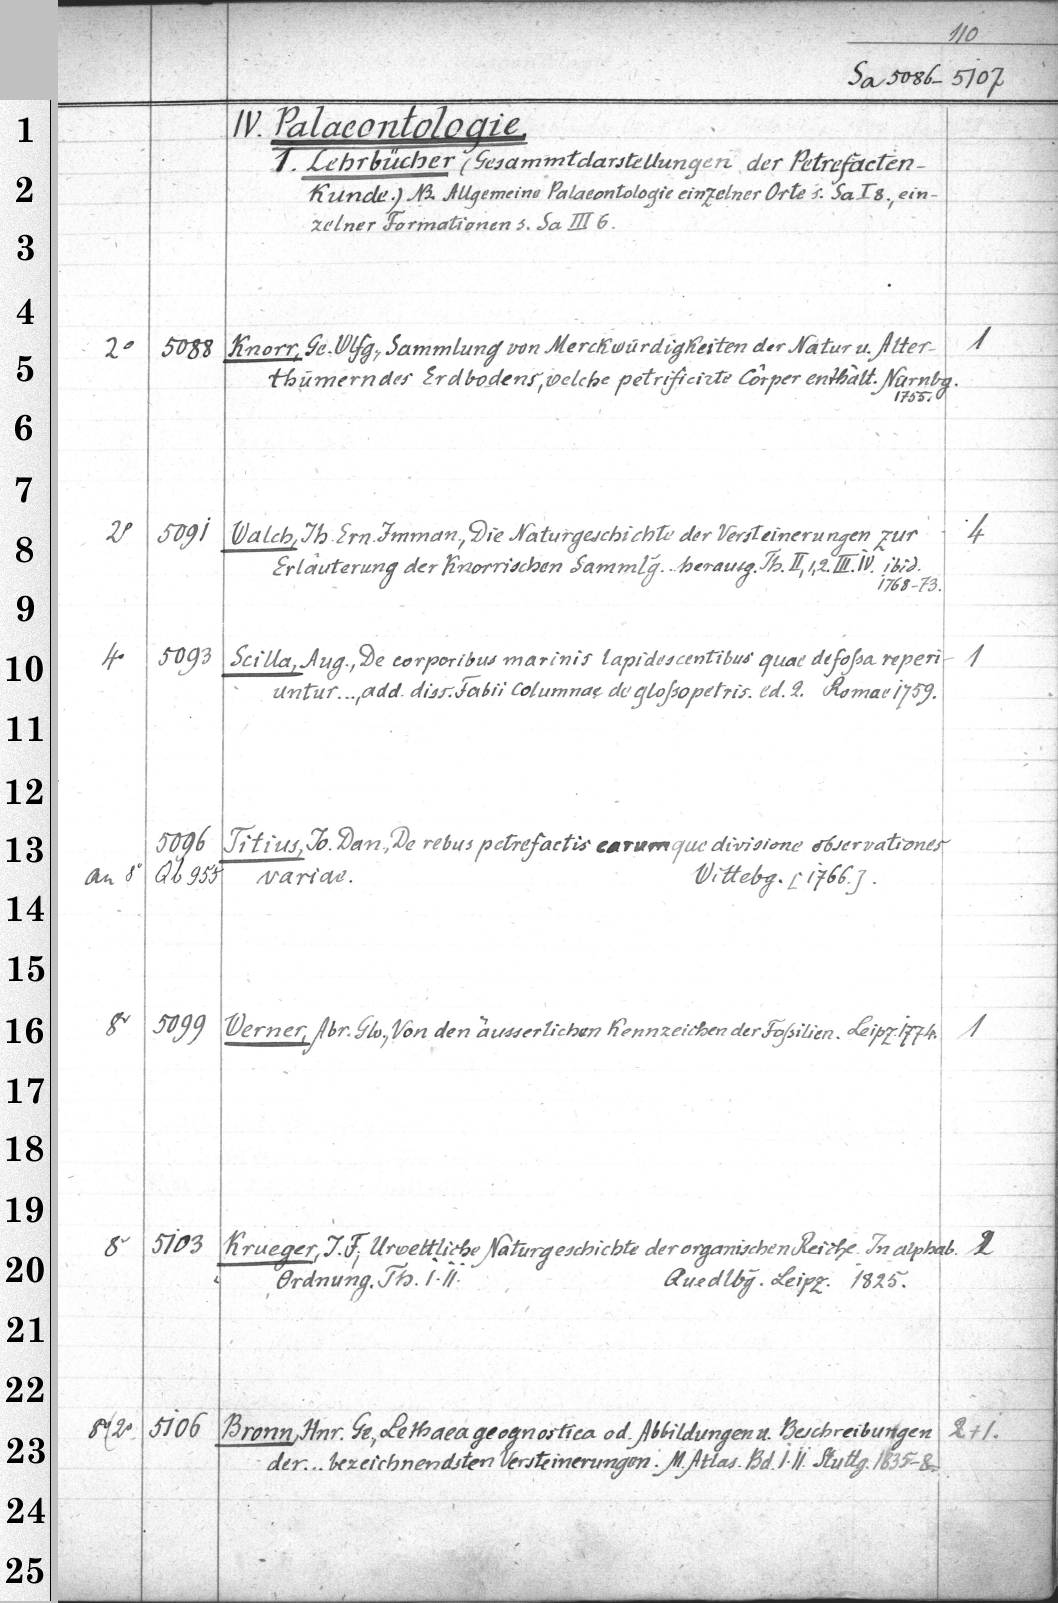 110
Sa 5086-5107
IV. Palaeontologie
1. Lehrbücher (Gesammtdarstellungen der Petrefacten-
Kunde.) NB. Allgemeine Palaeontologie einzelner Orte s. Sa I 8., ein-
zelner Formationen s. Sa III 6.
2° 5088 Knorr, Ge. Wfg., Sammlung von Merckwürdigkeiten der Natur u. Alter- 1
thümern des Erdbodens, welche petrificirte Cörper enthält. Nürnbg.
1755.
2° 5091 Walch, Ih. Ern. Imman., Die Naturgeschichte der Versteinerungen zur 4
Erläuterung der Knorrischen Sammlg. herausg. Th. II, 1, 2. III. IV. ibid.
1768-73.
4° 5093 Scilla, Aug., De corporibus marinis lapidescentibus quae defossa reperi- 1
untur..., add. diss. Fabii Columnae de glossopetris. ed. 2. Romae 1759.
5096 Titius, Jo. Dan., De rebus petrefactis earumque divisione observationes
an 8° Qb 955 variae. Wittebg. [1766.].
8° 5099 Werner, Abr. Glo., Von den äusserlichen Kennzeichen der Fossilien. Leipz. 1774. 1
8° 5103 Krueger, J. F., Urweltliche Naturgeschichte der organischen Reiche. In alphab. 2
Ordnung. Th. I. II. Quedlbg. Leipz. 1825.
8°(2° 5106 Bronn, Hnr. Ge., Lethaea geognostica od. Abbildungen u. Beschreibungen 2+1.
der... bezeichnendsten Versteinerungen. M. Atlas. Bd. I. II. Stuttg. 1835-8.
1
2
3
4
5
6
7
8
9
10
11
12
13
14
15
16
17
18
19
20
21
22
23
24
25